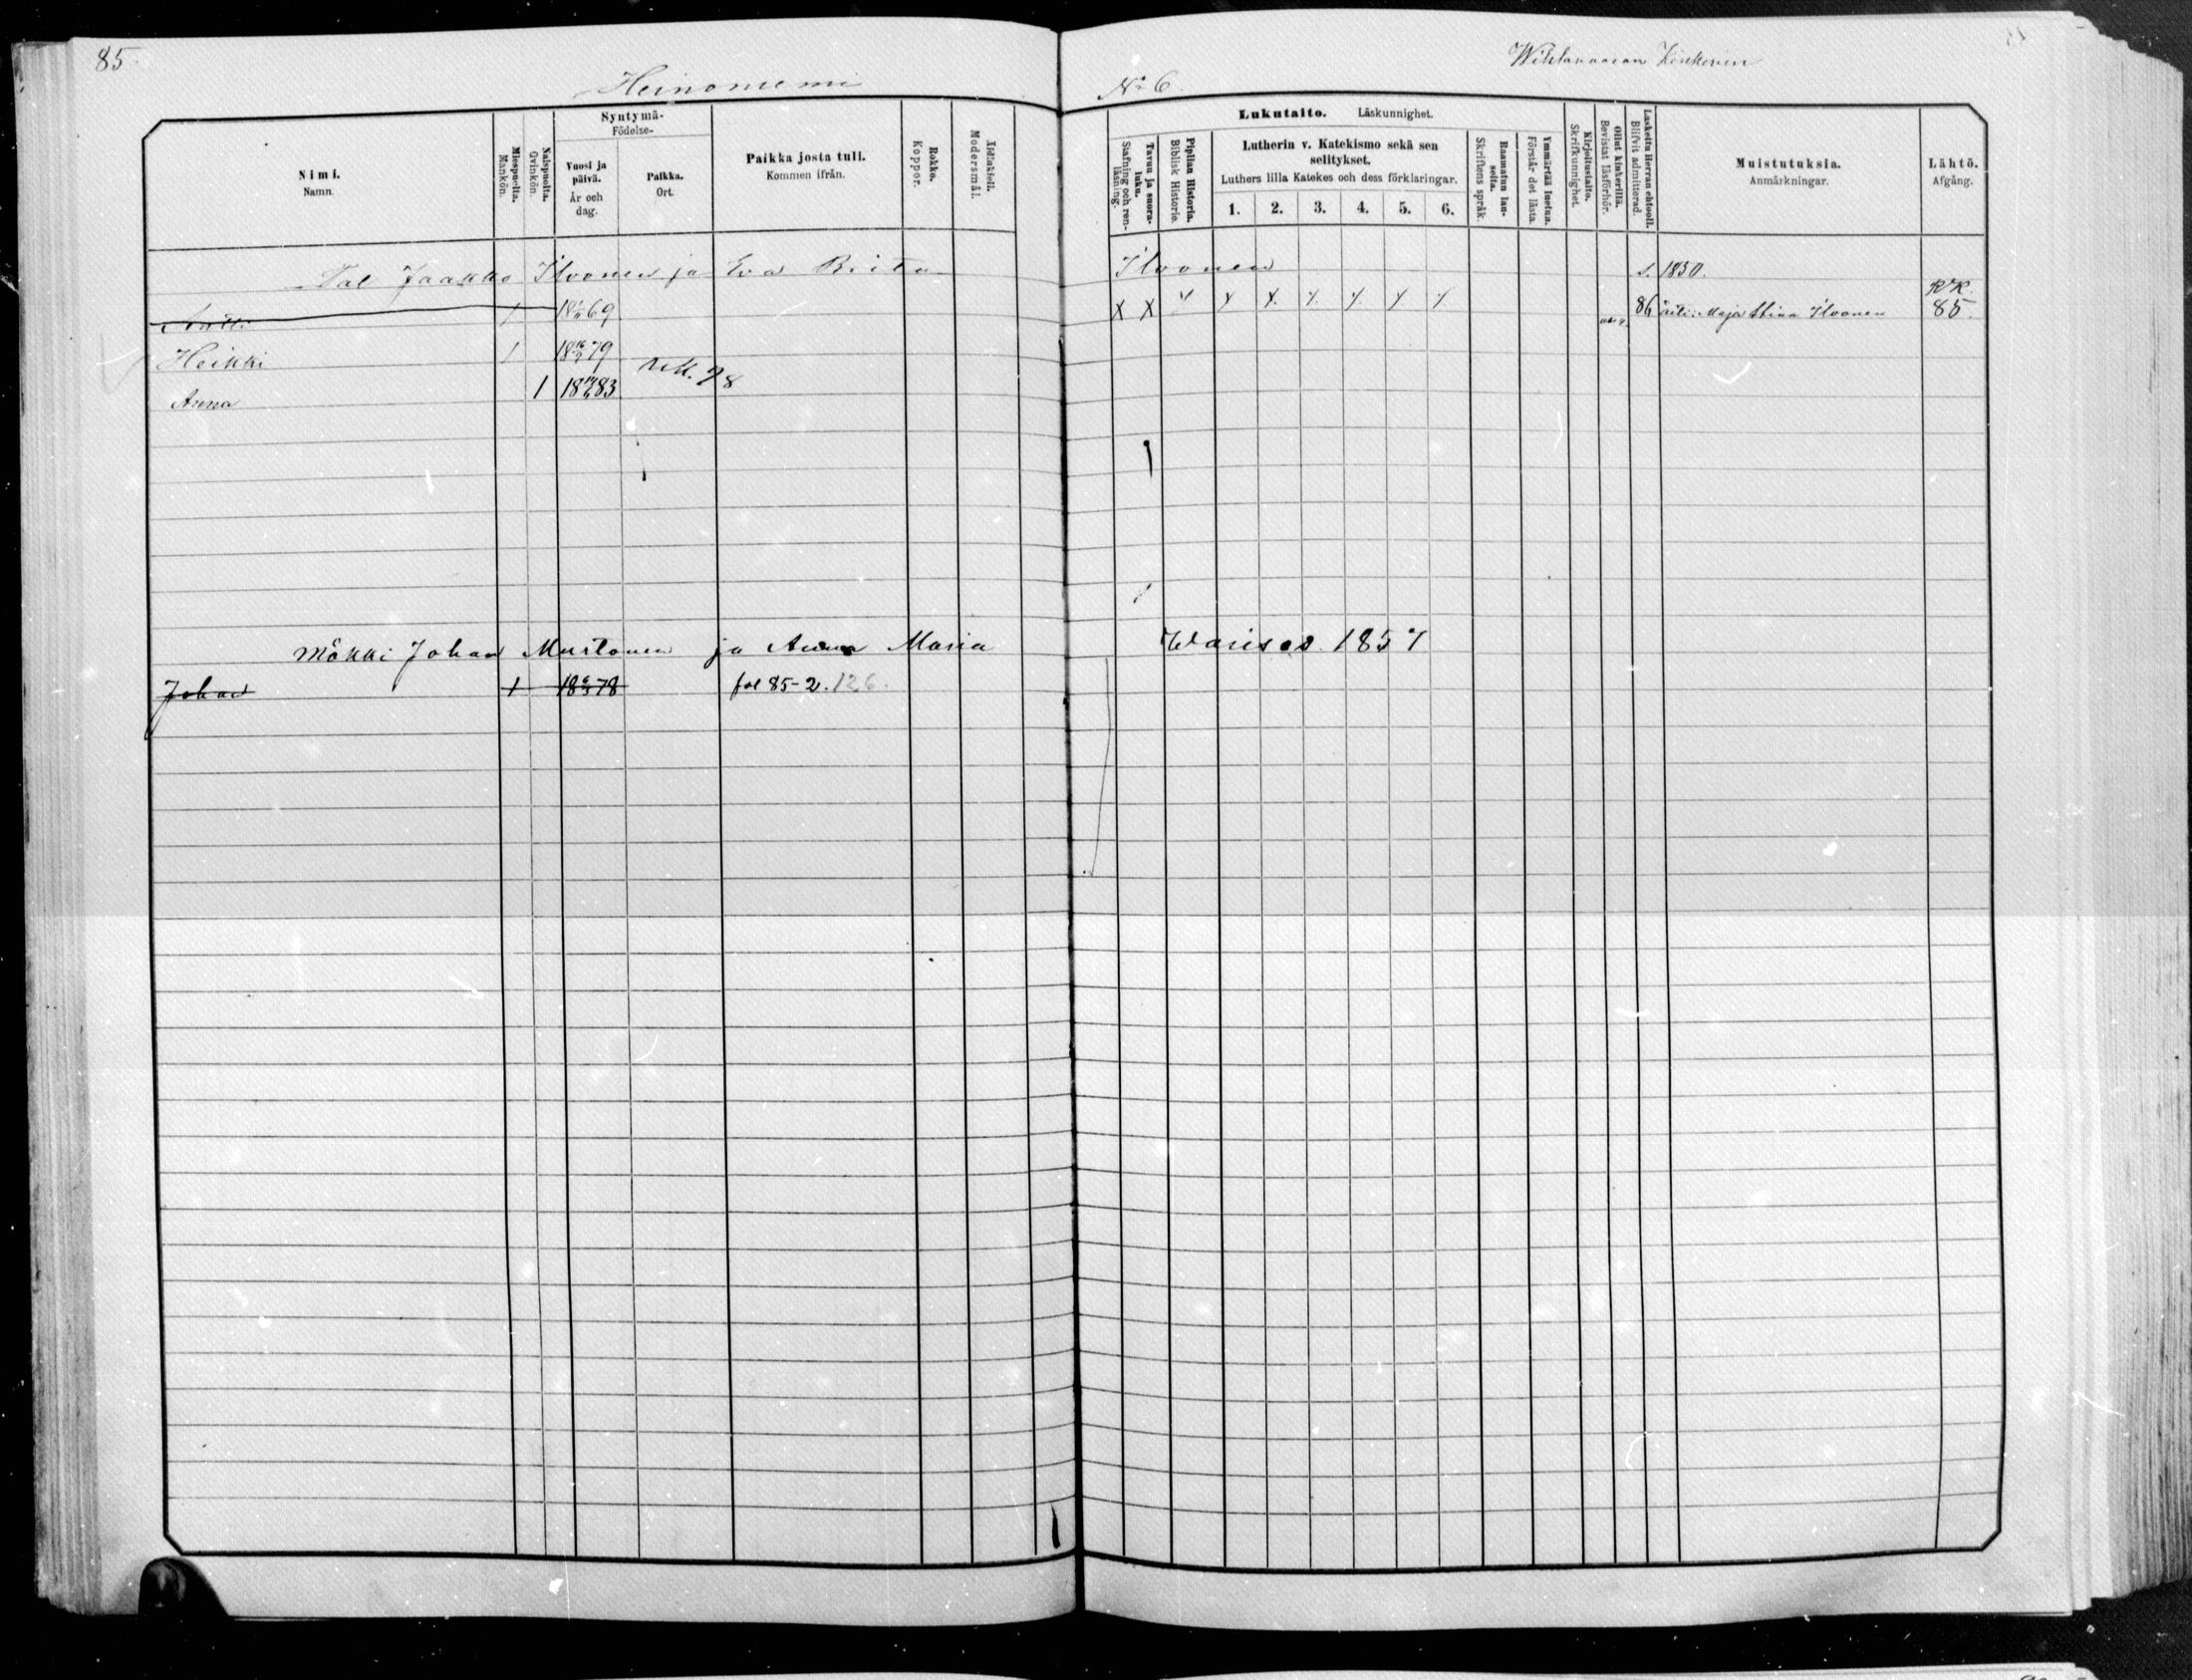 85.
Heinoniemi
No 6.
Lukutaito. Läskunnighet.
Syntymä-
Födelse-
Nimi.
Namn.
Miespuolta.
Mankön.
Naispuolta.
Qvinkön.
Vuosi ja päivä.
År och dag.
Paikka.
Ort.
Paikka josta tuli.
Kommen ifrån.
Rokko.
Koppor.
Äidinkieli.
Modersmål.
Tavuu ja suoraluku.
Stafning och renläsning.
Piplian Historia.
Biblisk Historie.
Lutherin v. Katekismo sekä sen selitykset.
Luthers lilla Katekes och dess förklaringar.
1. 2. 3. 4. 5. 6.
Raamatun lauseita.
Skriftens språk.
Ymmärtää luetun.
Förstår det lästa.
Kirjoitustaito.
Skrifkunnighet.
Ollut kinkerillä.
Bevistat läsförhör.
Laskettu Herran ehtooll.
Blifvit admitterad.
Muistutuksia.
Anmärkningar.
Lähtö.
Afgång.
Tal Jaakko Ilvonen ja Eva Brita Ilvonen s. 1850.
Antti 1 18 69 X X X X X X X X X 86 äiti: Maja Stina Ilvonen RK. 85.
Heikki 1 18 79
Anna 1 18 83 78
Mökki Johan Mustonen ja Anna Maria 1857
Johan 1 18 78 fol 85-2. 126.